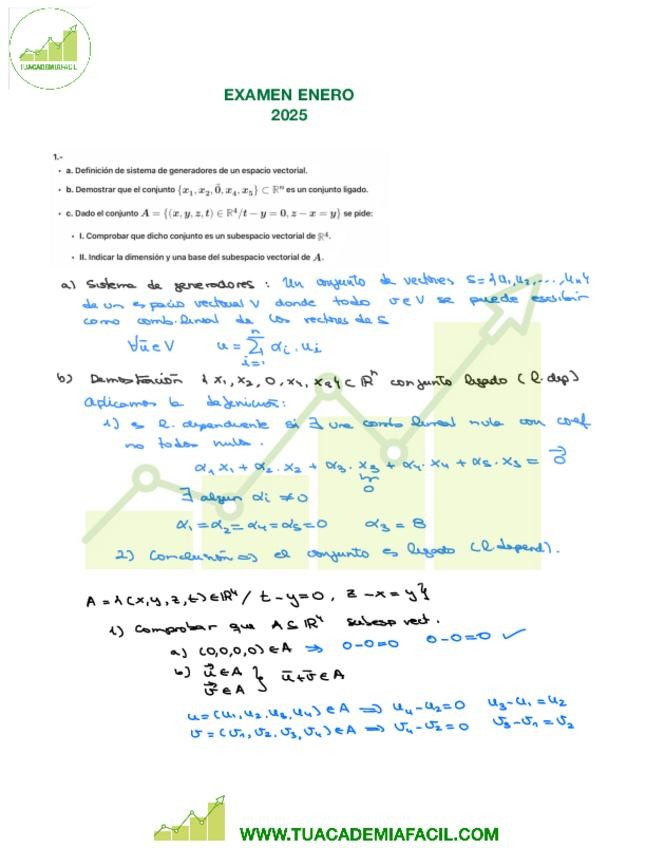 TUACADEMIAFACIL
EXAMEN ENERO
2025
1.-
• a. Definición de sistema de generadores de un espacio vectorial.
• b. Demostrar que el conjunto {x₁, x₂, 0⃗, x₄, x₅} ⊂ ℝⁿ es un conjunto ligado.
• c. Dado el conjunto A = {(x, y, z, t) ∈ ℝ⁴/t − y = 0, z − x = y} se pide:
• I. Comprobar que dicho conjunto es un subespacio vectorial de ℝ⁴.
• II. Indicar la dimensión y una base del subespacio vectorial de A.
a) Sistema de generadores : Un conjunto de vectores S={u₁,u₂,...,uₙ}
de un espacio vectorial V donde todo v∈V se puede escribir
como comb. lineal de los vectores de S
∀ū∈V u = Σⁿᵢ₌₁ αᵢ.uᵢ
b) Demostración {x₁, x₂, 0, x₄, x₅} ⊂ ℝⁿ conjunto ligado (l.dep)
Aplicamos la definición:
1) es l. dependiente si ∃ una comb lineal nula con coef
no todos nulos.
α₁ x₁ + α₂. x₂ + α₃. x₃ + α₄. x₄ + α₅. x₅ = 0⃗
0
∃ algun αᵢ ≠0
α₁ = α₂= α₄= α₅=0 α₃ = 8
2) Conclusión ⇒ el conjunto es ligado (l.depend).
A = {(x,y,z,t)∈ℝ⁴/ t-y=0, z-x=y}
1) Comprobar que A⊆ℝ⁴ subesp vect.
a) (0,0,0,0)∈A ⇒ 0-0=0 0-0=0 ✓
b) u⃗∈A } ū+v̄∈A
v⃗∈A
u=(u₁,u₂,u₃,u₄)∈A ⇒ u₄-u₂=0 u₃-u₁=u₂
v=(v₁,v₂,v₃,v₄)∈A ⇒ v₄-v₂=0 v₃-v₁=v₂
WWW.TUACADEMIAFACIL.COM